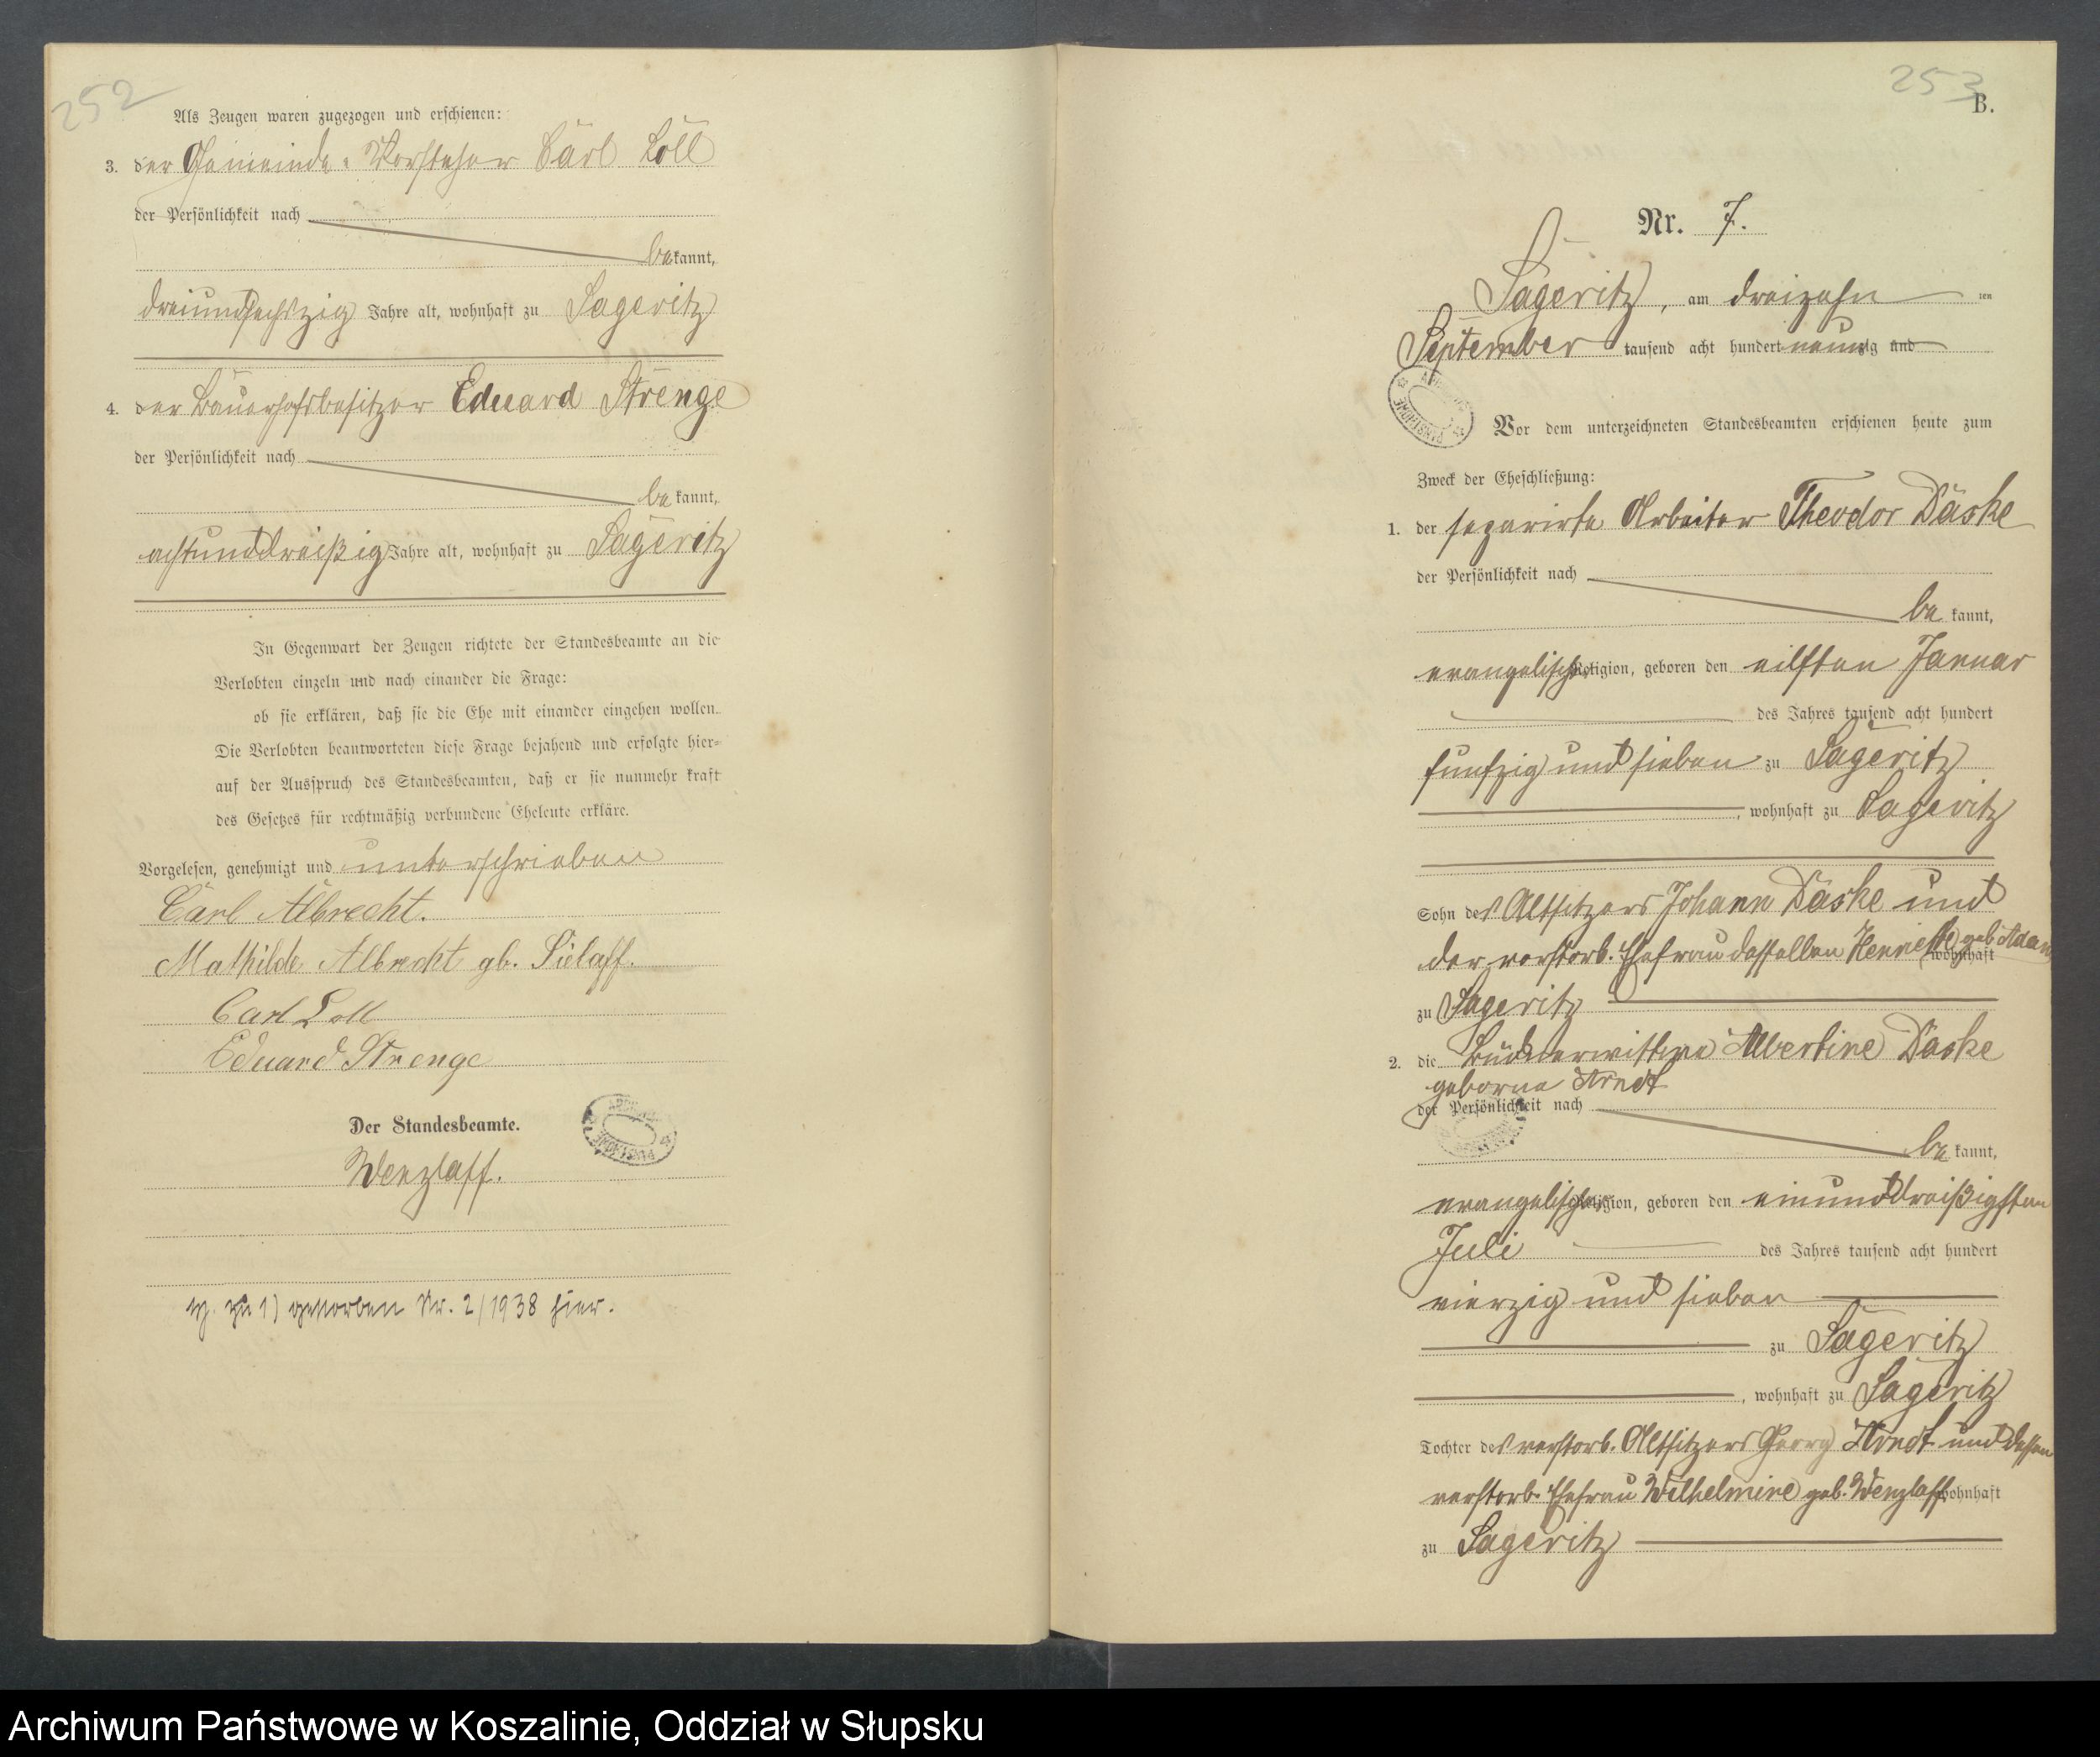 252
Als Zeugen waren zugezogen und erschienen:
3. der Gemeinde-Vorsteher Carl Loll
der Persönlichkeit nach
bekannt,
dreiundsechszig Jahre alt, wohnhaft zu Sageritz
4. der Bauerhofsbesitzer Eduard Strenge
der Persönlichkeit nach
bekannt,
achtunddreißig Jahre alt, wohnhaft zu Sageritz
In Gegenwart der Zeugen richtete der Standesbeamte an die
Verlobten einzeln und nach einander die Frage:
ob sie erklären, daß sie die Ehe mit einander eingehen wollen.
Die Verlobten beantworteten diese Frage bejahend und erfolgte hier-
auf der Ausspruch des Standesbeamten, daß er sie nunmehr kraft
des Gesetzes für rechtmäßig verbundene Eheleute erkläre.
Vorgelesen, genehmigt und unterschrieben
Carl Albrecht.
Mathilde Albrecht gb. Sielaff.
Carl Loll
Eduard Strenge
Der Standesbeamte.
Wenzlaff.
zu 1) gestorben Nr. 2/1938 hier.
253
B.
Nr. 7.
Sageritz, am dreizehn ten
September tausend acht hundert neunzig und
Vor dem unterzeichneten Standesbeamten erschienen heute zum
Zweck der Eheschließung:
1. der separirte Arbeiter Theodor Daske
der Persönlichkeit nach
bekannt,
evangelischer Religion, geboren den eilften Januar
des Jahres tausend acht hundert
funfzig und sieben zu Sageritz
, wohnhaft zu Sageritz
Sohn des Altsitzers Johann Daske und
der verstorb. Ehefrau desselben Henriette geb. Adam
wohnhaft
zu Sageritz
2. die Büdnerwittwe Albertine Daske
geborne Arndt
der Persönlichkeit nach
bekannt,
evangelischer Religion, geboren den einunddreißigsten
Juli des Jahres tausend acht hundert
vierzig und sieben
zu Sageritz
, wohnhaft zu Sageritz
Tochter des verstorb. Altsitzers Georg Arndt und dessen
verstorb. Ehefrau Wilhelmine geb. Wenzlaff wohnhaft
zu Sageritz
Archiwum Państwowe w Koszalinie, Oddział w Słupsku